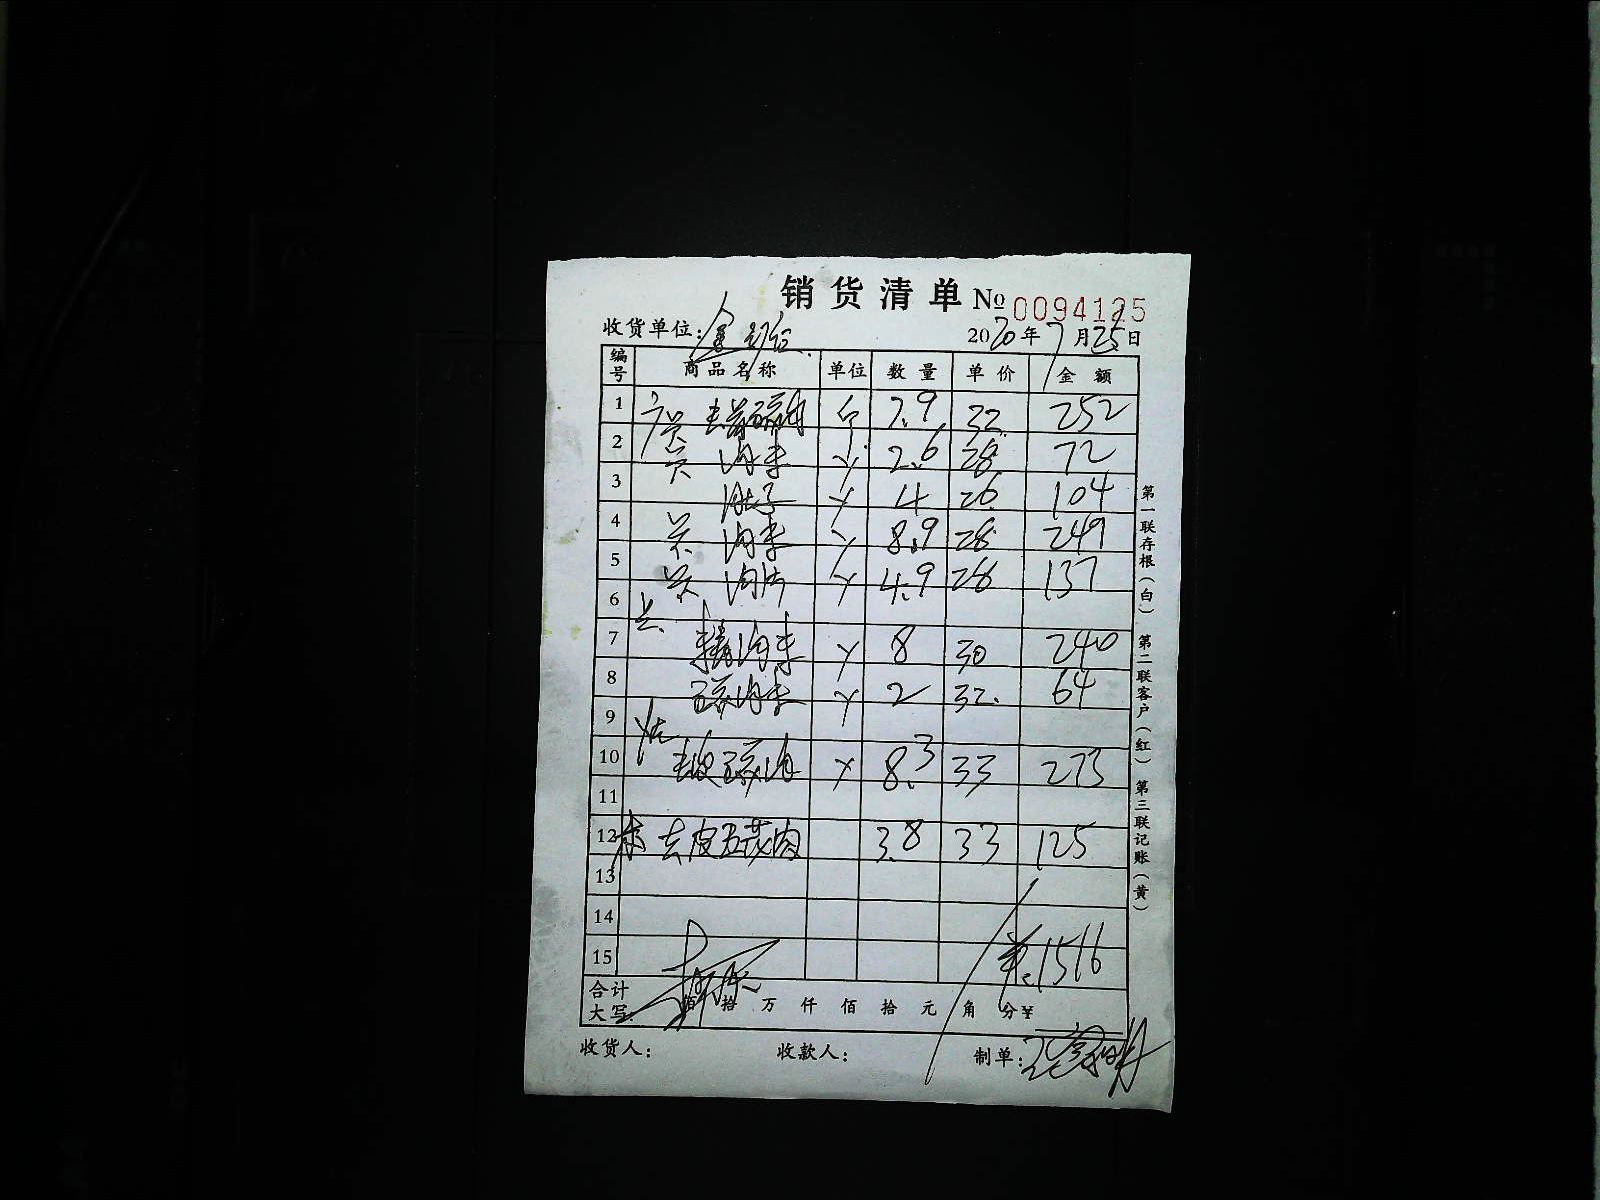 销货清单 № 0094125
收货单位： 2020年7月25日
编号 商品名称 单位 数量 单价 金额
1 斤 7.9 32 252
2 肉末 2.6 28 72
3 肚子 4 26 104
4 肉末 8.9 28 249
5 肉片 4.9 28 137
6
7 精肉末 8 30 240
8 肉末 2 32 64
9
10 去皮五花肉 8.3 33 273
11
12 去皮五花肉 3.8 33 125
13
14
15 1516
合计大写： 佰 拾 万 仟 佰 拾 元 角 分 ¥
收货人： 收款人： 制单：
第一联存根（白） 第二联客户（红） 第三联记账（黄）